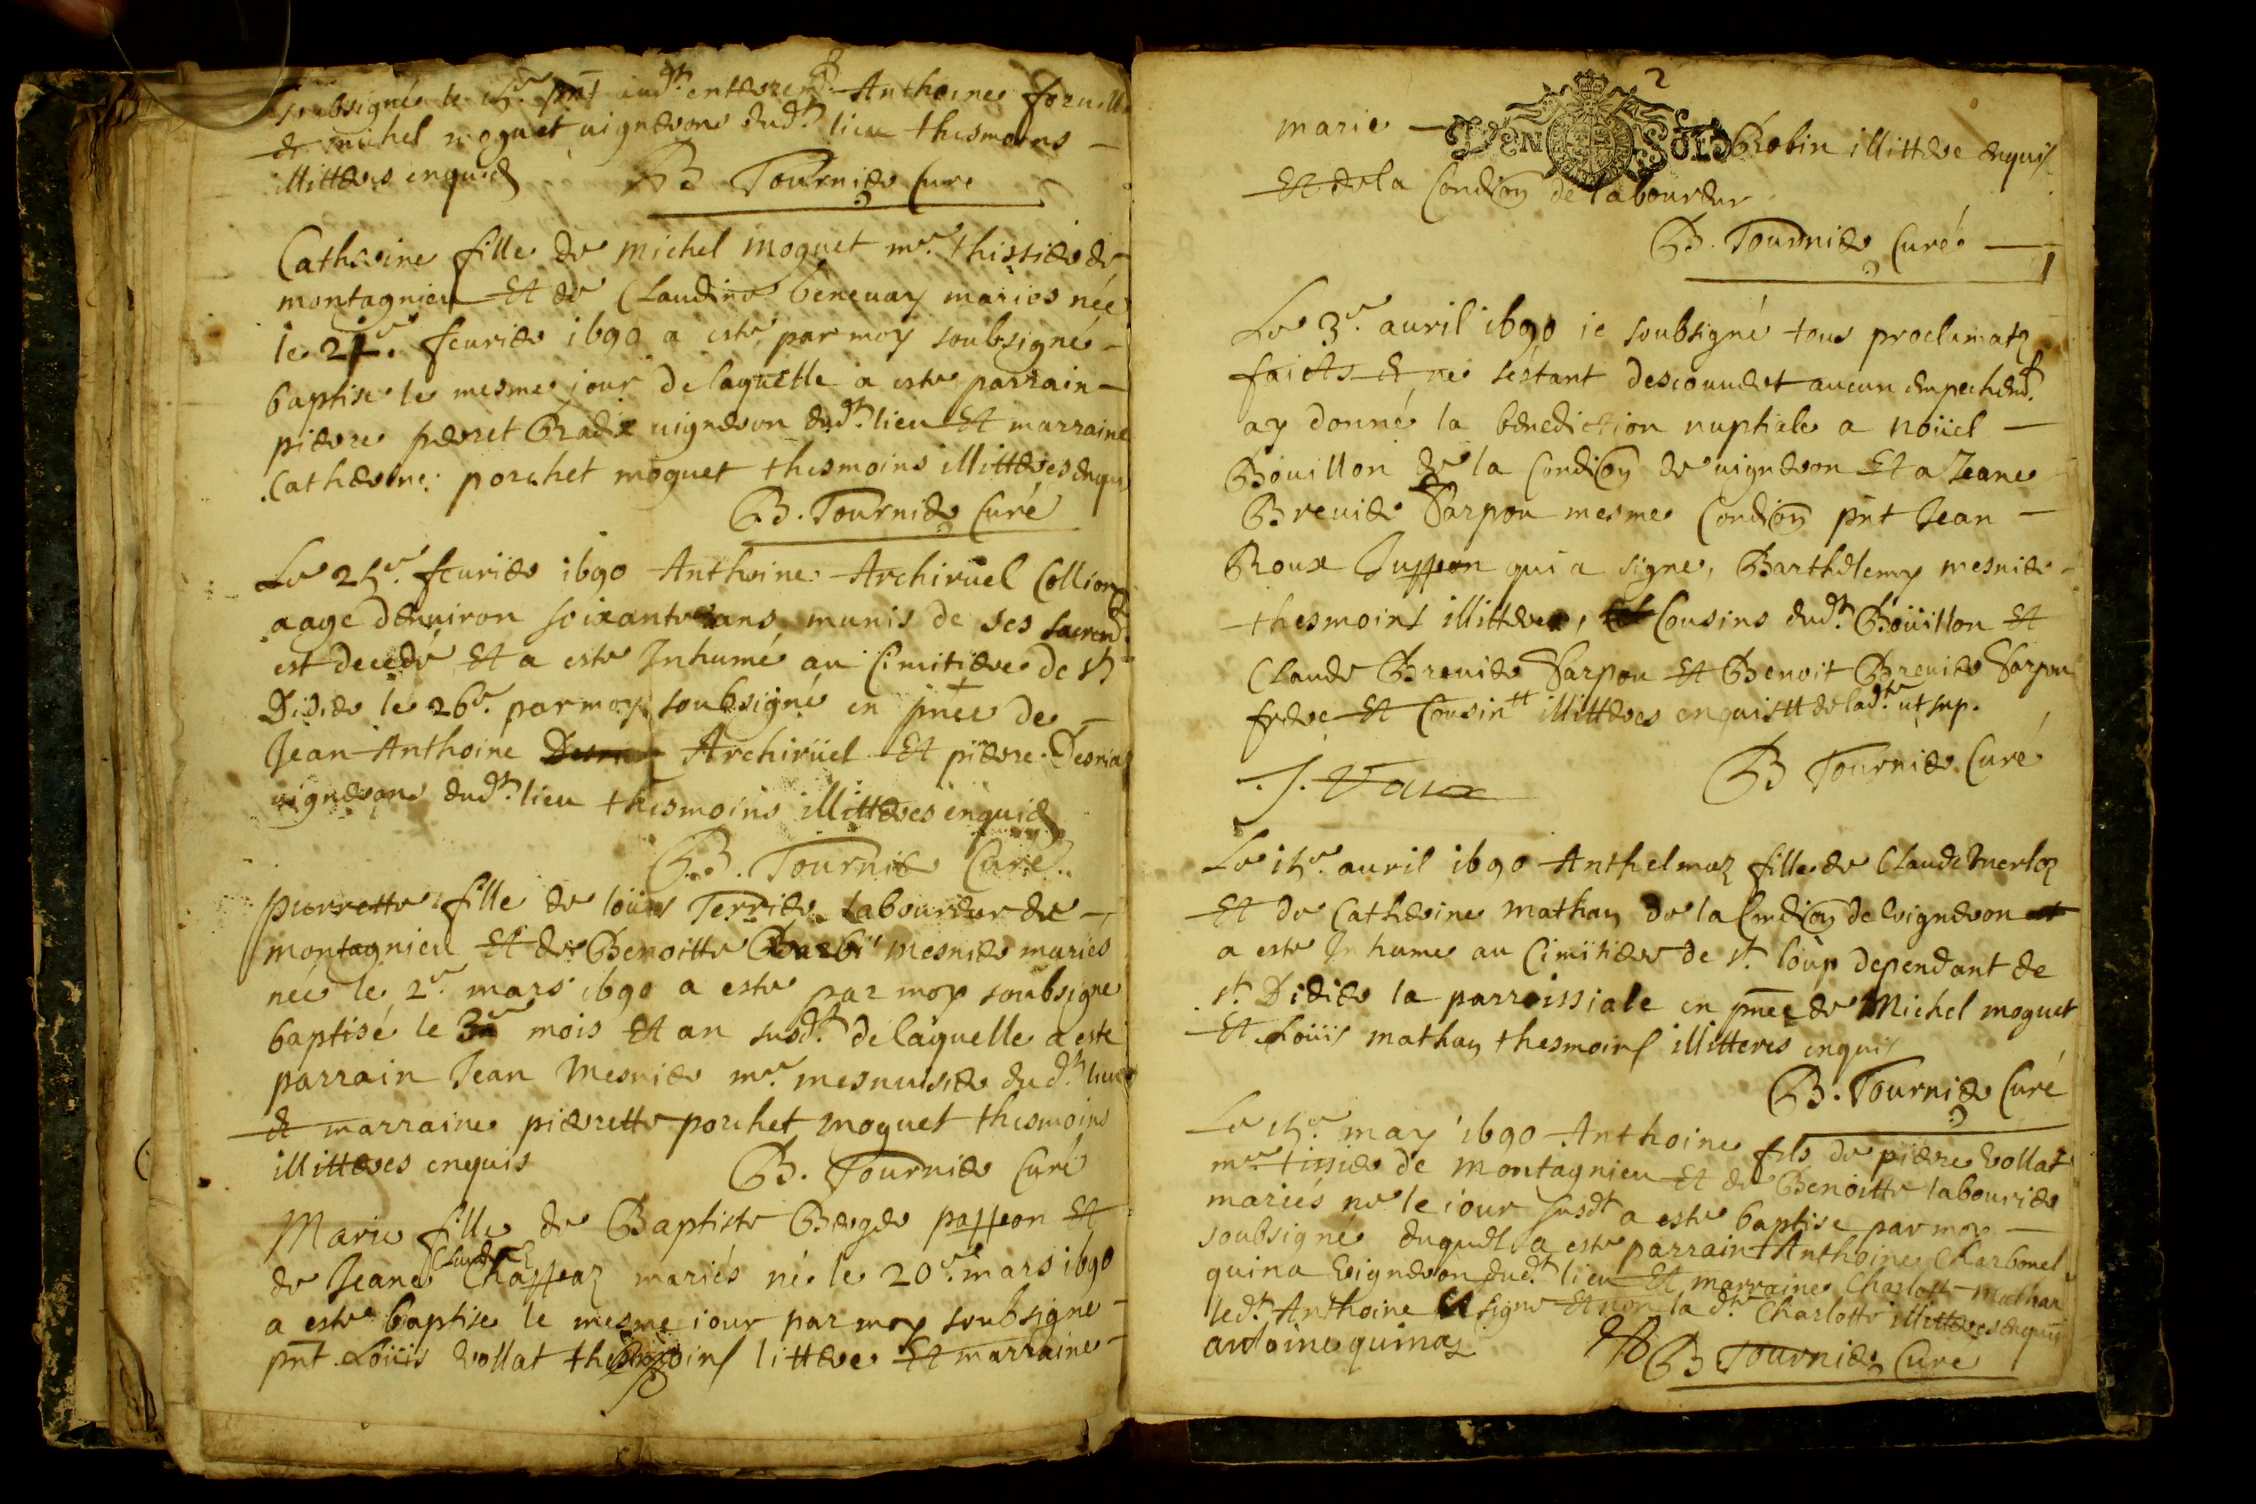 soubsigné le pnt aud.t enterrem.t Anthoine
& michel moguet uigneron dud.t lieu thesmoins
illitteres enquis B Tournier Curé
Catherine fille de michel moguet m.re thissier de
montagnieu Et de Claudine beneuay maries née
le 24. feurier 1690 a este par moy soubsigné
baptise le mesme jour de laquelle a este parrain
pierre perret uigneron dud.t lieu Et marraine
Catherine porchet moguet thesmoins illitteres enquis
B. Tournier Curé
Le 25.e feurier 1690 Anthoine Archiruel Colliony
aage denuiron soixante ans munis de ses sacrem.
est decede Et a este Inhumé au Cimitiere de St
Didier le 26.e par moy soubsigné en pnce de
Jean Anthoine Archirüel Et pierre
uignerons dud.t lieu thesmoins illitteres enquis
B. Tournier Curé
pierrette fille de loüis Terrier Laboureur de
montagnieu Et de Benoitte mesnier mariés
née le 2.e mars 1690 a este par moy soubsigne
baptisé le 3e mois Et an susd.t de laquelle a esté
parrain Jean Mesnier m.re mesnuisier dud.t lieu
& marraine pierrette porchet moguet thesmoins
illitteres enquis B. Tournier Curé
Marie fille de Baptiste Berger passeon Et
de Jeane Claudine Chasseaz mariés né le 20.e mars 1690
a este baptise le mesme iour par moy soubsigne
pnt Loüis Vollat thesmoins littere Et marraine
2
DEN SOLS
marie Robin illittere enquis
Et de la Condion de laboureur
B. Tournier Curé
Le 3.e auril 1690 ie soubsigné tous proclamatz
faicts & ne sestant descouuert aucun empechemt
ay donné la benediction nuptiale a noüel
Boüillon de la Condion de uigneron Et a Jeane
Breuier Sarpou mesme Condion pnt Jean
Roux Juppeon qui a signe, Barthelemy mesnier
thesmoins illitteres, Cousins dud.t Boüillon Et
Claude Breuier Sarpou Et Benoit Breuier Sarpou
frere Et Cousin illitteres enquis de lad.te ut sup.
B Tournier Curé
Le 15.e auril 1690 Anthelmaz fille de Claude Merloz
Et de Catherine mathay de la Condion de Vigneron
a este Inhume au Cimitiere de st. loup dependant de
st. Didier la parroissiale en pnce de Michel moguet
Et Loüis mathay thesmoins illitteres enquis
B. Tournier Curé
Le 15.e may 1690 Anthoine fils de pierre Vollat
m.re tissier de montagnieu Et de Benoitte labourier
mariés ne le iour susdt a este baptise par moy
soubsigné duquel a este parrain Anthoine Charbonel
quina Vigneron dud.t lieu Et marraine Charlotte mathay
led.t Anthoine a signe Et non la d.te Charlotte illitteres enquis
antoine quinaz B Tournier Curé